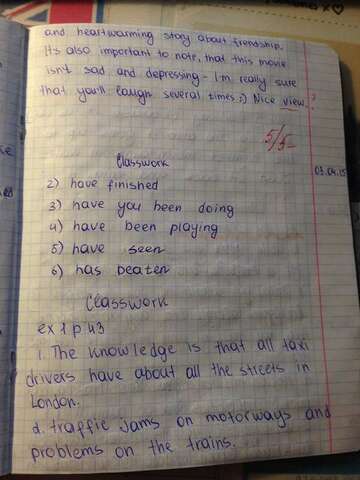 and, heartwarming story about friendship.
It's also important to note, that this movie
isn't sad and depressing - I'm really sure
that you'll laugh several times ;) Nice view.
5/5-
Classwork
03.04.15
2) have finished
3) have you been doing
4) have been playing
5) have seen
6) has beaten
Classwork
ex 1 p 43
1. The knowledge is that all taxi
drivers have about all the streets in
London.
2. traffic jams on motorways and
problems on the trains.